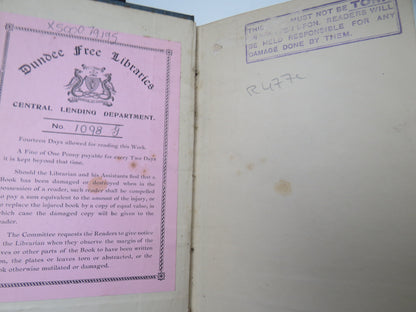 X500079195
Dundee Free Libraries
CENTRAL LENDING DEPARTMENT.
No. 1098
Fourteen Days allowed for reading this Work.
A Fine of One Penny payable for every Two Days
it is kept beyond that time.
Should the Librarian and his Assistants find that a
Book has been damaged or destroyed when in the
possession of a reader, such reader shall be compelled
to pay a sum equivalent to the amount of the injury, or
to replace the injured book by a copy of equal value, in
which case the damaged copy will be given to the
reader.
The Committee requests the Readers to give notice
the Librarian when they observe the margin of the
ves or other parts of the Book to have been written
on, the plates or leaves torn or abstracted, or the
ok otherwise mutilated or damaged.
THIS MUST NOT BE TORN
READERS WILL
BE HELD RESPONSIBLE FOR ANY
DAMAGE DONE BY THEM.
R477c